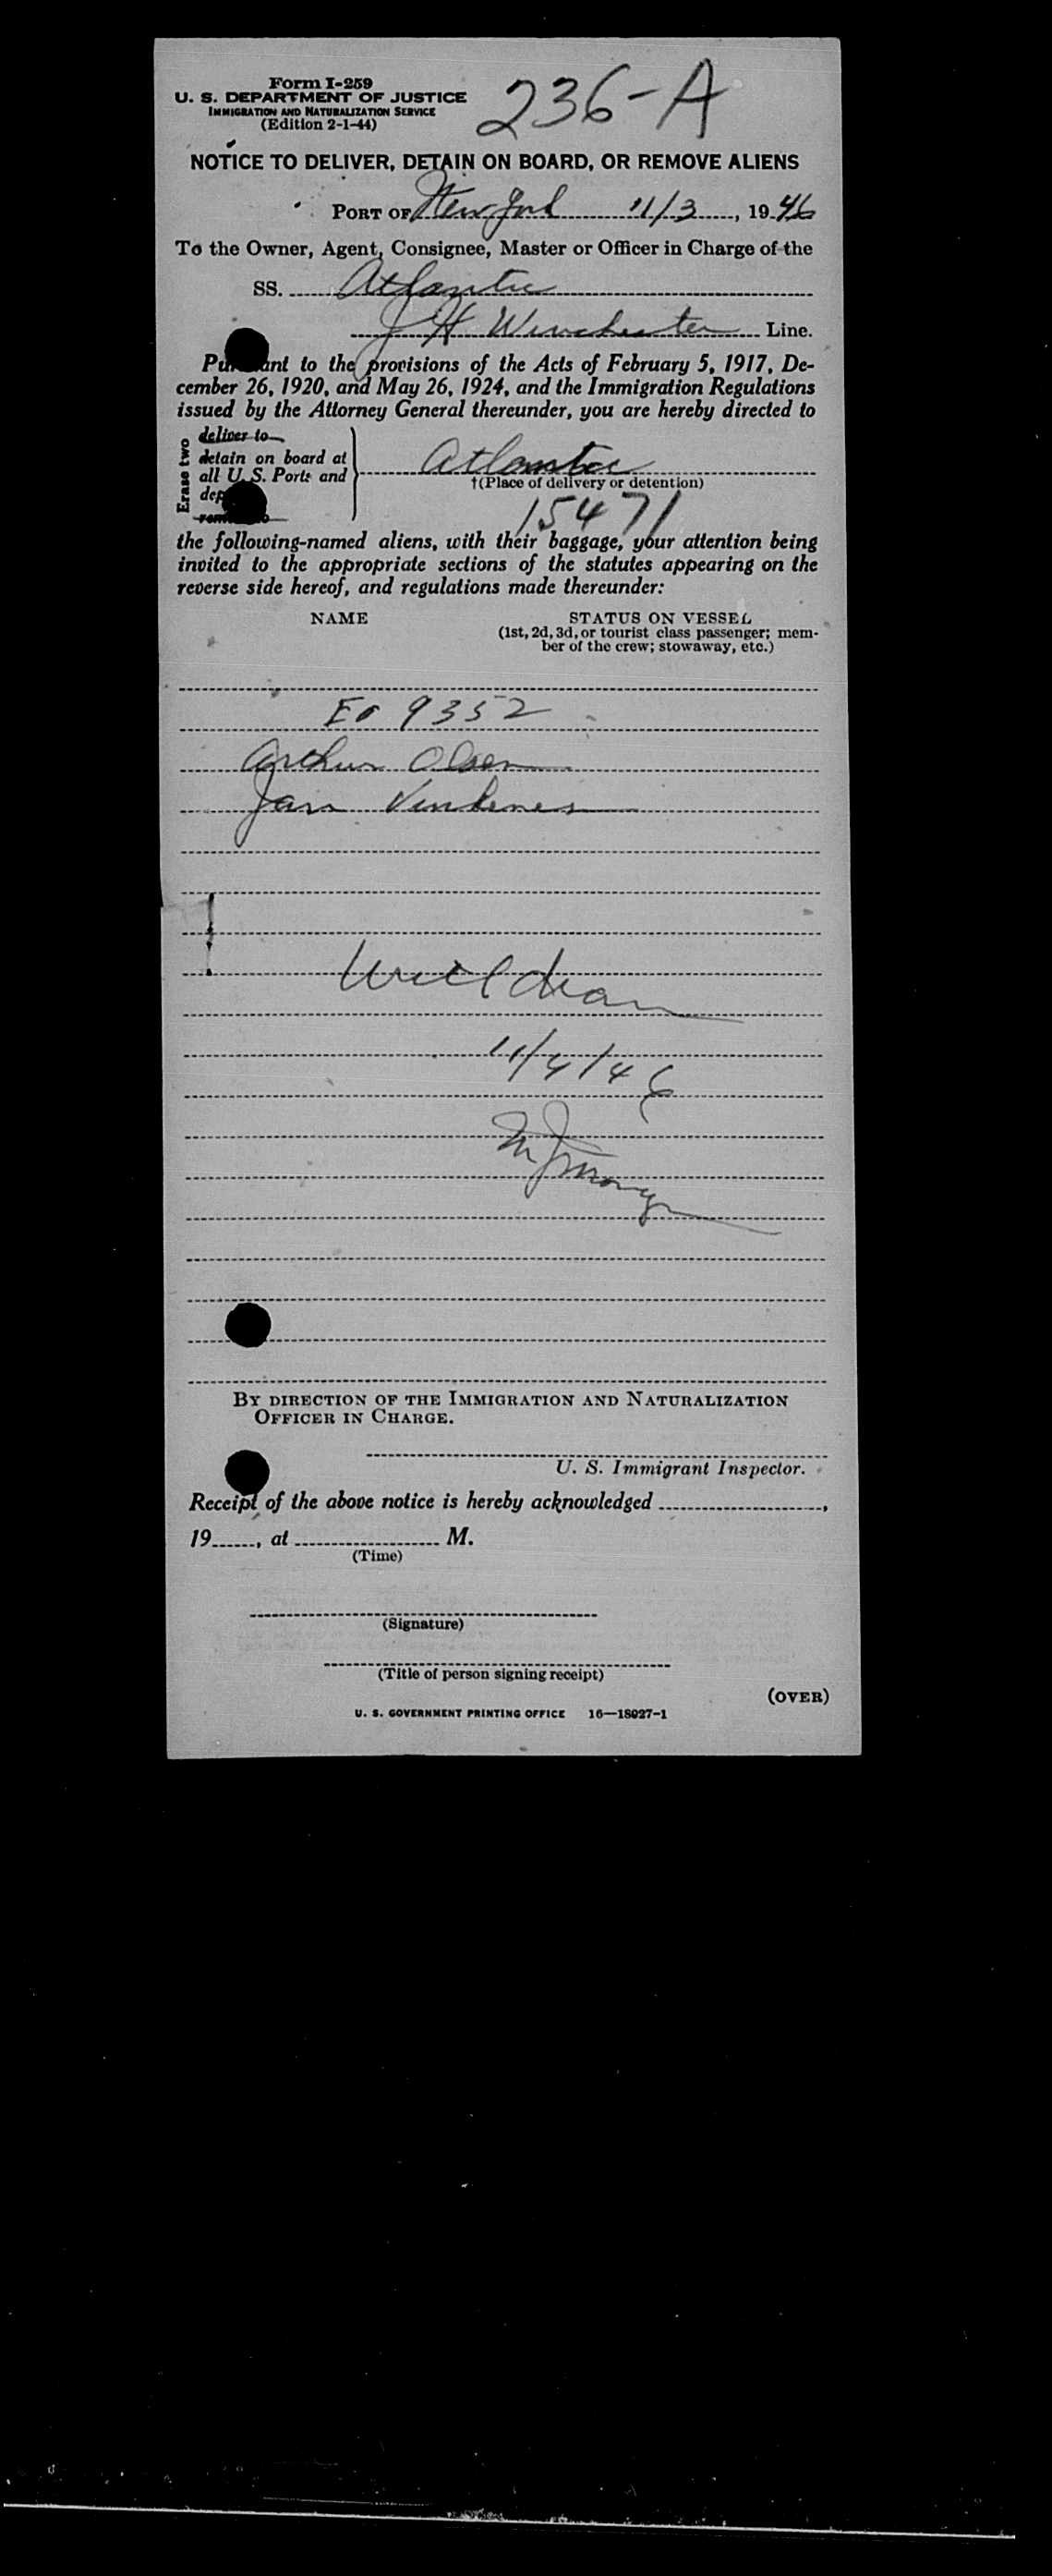 Form I-259
U. S. DEPARTMENT OF JUSTICE
IMMIGRATION AND NATURALIZATION SERVICE
(Edition 2-1-44)
236-A
NOTICE TO DELIVER, DETAIN ON BOARD, OR REMOVE ALIENS
PORT OF New York 11/3, 1946
To the Owner, Agent, Consignee, Master or Officer in Charge of the
SS. Atlantic
J H Winchester Line.
to the provisions of the Acts of February 5, 1917, De-
cember 26, 1920, and May 26, 1924, and the Immigration Regulations
issued by the Attorney General thereunder, you are hereby directed to
Erase two
deliver to
detain on board at
all U. S. Ports and
Atlantic
†(Place of delivery or detention)
15471
the following-named aliens, with their baggage, your attention being
invited to the appropriate sections of the statutes appearing on the
reverse side hereof, and regulations made thereunder:
NAME
STATUS ON VESSEL
(1st, 2d, 3d, or tourist class passenger; mem-
ber of the crew; stowaway, etc.)
9352
Arthur Olsen
Jan
11/4/46
BY DIRECTION OF THE IMMIGRATION AND NATURALIZATION
OFFICER IN CHARGE.
U. S. Immigrant Inspector.
Receipt of the above notice is hereby acknowledged ,
19 , at M.
(Time)
(Signature)
(Title of person signing receipt)
(OVER)
U. S. GOVERNMENT PRINTING OFFICE 16—18027-1